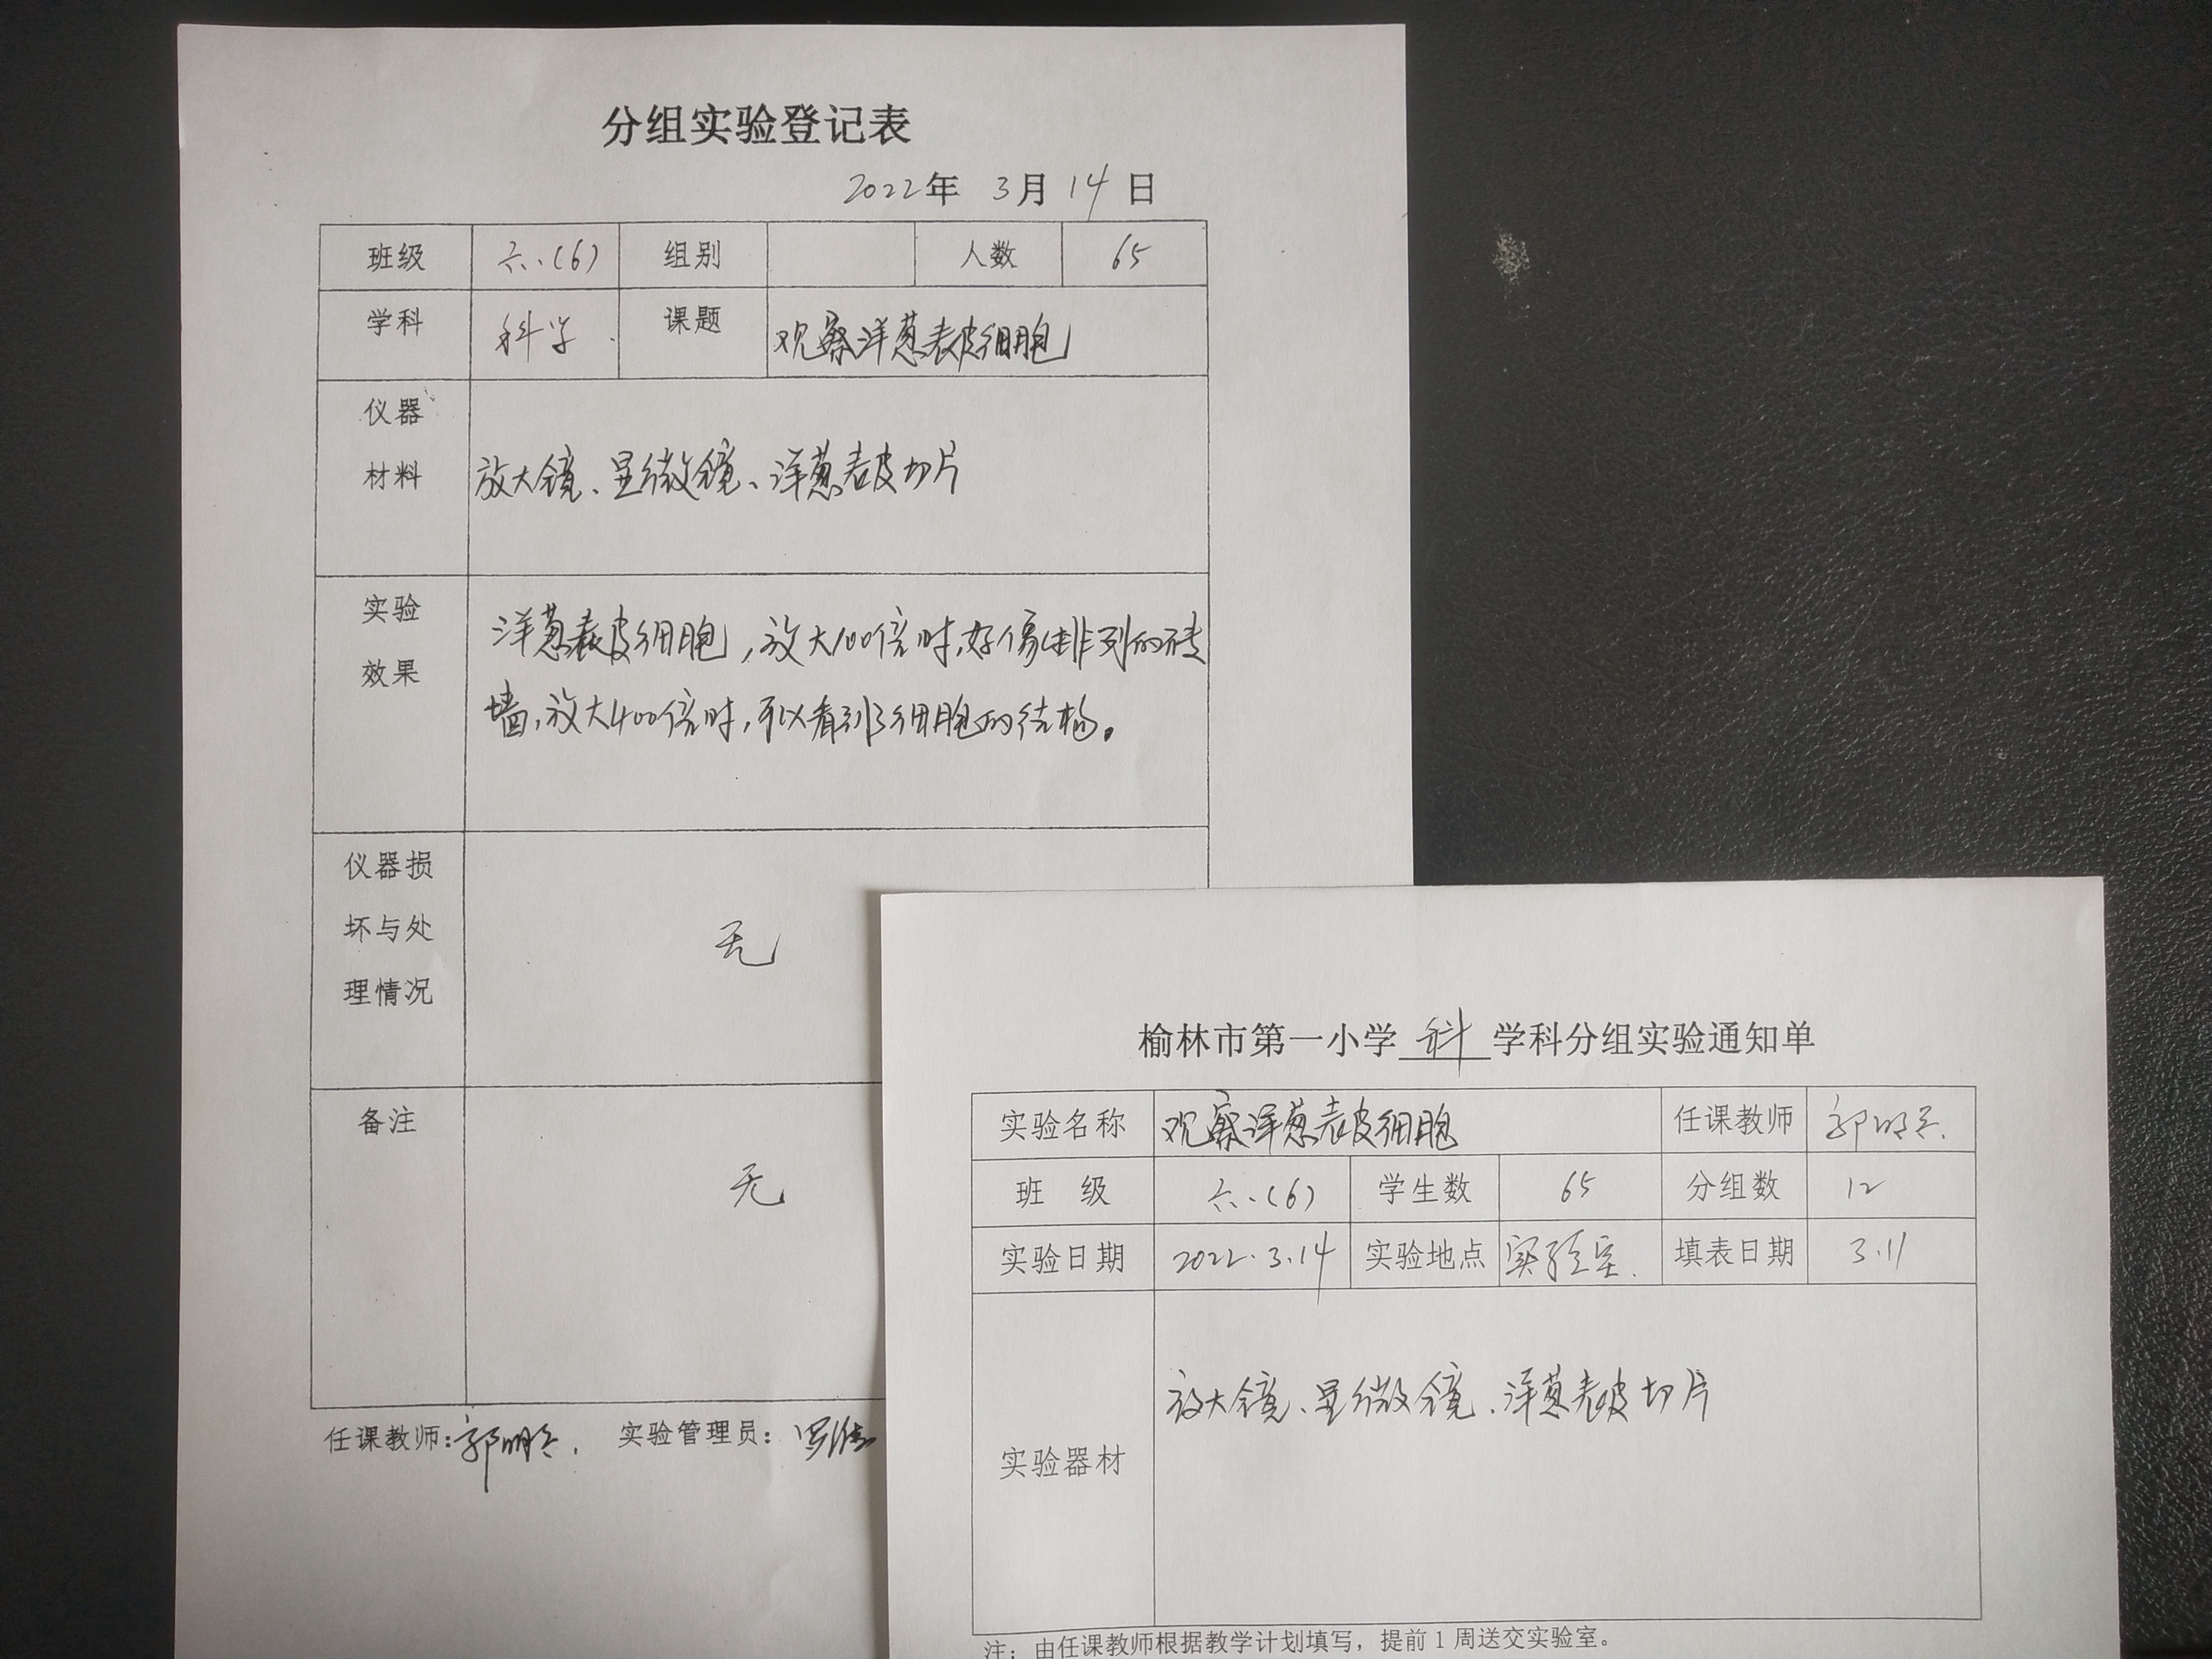 分组实验登记表
2022年 3月 14日
班级 六、(6) 组别 人数 65
学科 科学 课题 观察洋葱表皮细胞
仪器
材料
放大镜、显微镜、洋葱表皮切片
实验
效果
洋葱表皮细胞,放大100倍时,好像排列的砖
墙,放大400倍时,可以看到了细胞的结构。
仪器损
坏与处
理情况
无
备注
无
任课教师: 实验管理员:
榆林市第一小学 科 学科分组实验通知单
实验名称 观察洋葱表皮细胞 任课教师
班 级 六、(6) 学生数 65 分组数 12
实验日期 2022.3.14 实验地点 实验室. 填表日期 3.11
实验器材
放大镜、显微镜、洋葱表皮切片
注：由任课教师根据教学计划填写，提前1周送交实验室。